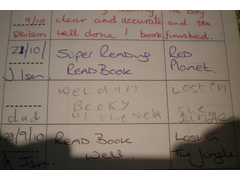 clear and accurate and the
9/10 well done! book finished.
21/10/ Super Reading RED
READ BOOK Planet.
well dun Lost in
Becky the
dad jungle
23/9/10 READ BOOK Lost in
Well The Jungle